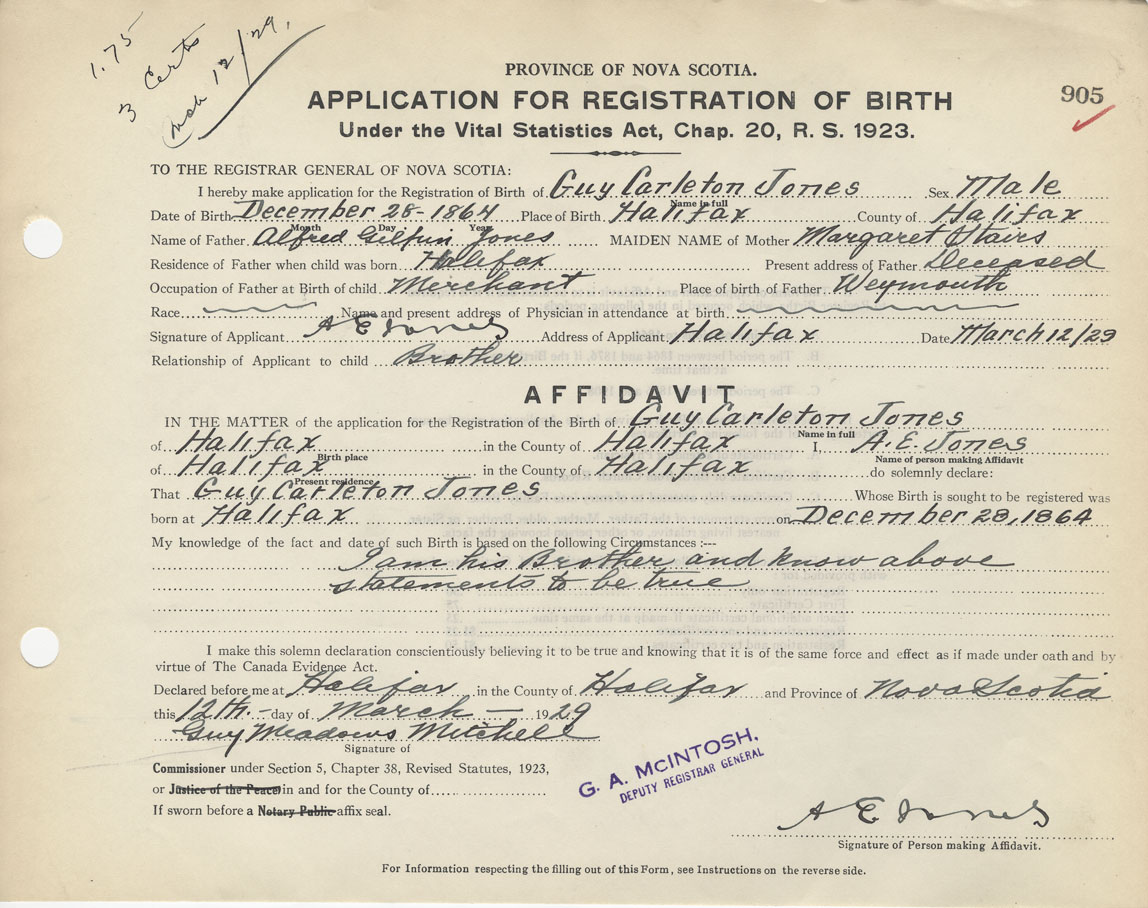 1.75
3 Certs
Mch 12/29.
PROVINCE OF NOVA SCOTIA.
APPLICATION FOR REGISTRATION OF BIRTH
905
Under the Vital Statistics Act, Chap. 20, R. S. 1923.
TO THE REGISTRAR GENERAL OF NOVA SCOTIA:
I hereby make application for the Registration of Birth of Guy Carleton Jones Sex Male
Name in full
Date of Birth December 28-1864 Place of Birth Halifax County of Halifax
Month Day Year
Name of Father Alfred Gilpin Jones MAIDEN NAME of Mother Margaret Stairs
Residence of Father when child was born Halifax Present address of Father Deceased
Occupation of Father at Birth of child Merchant Place of birth of Father Weymouth
Race Name and present address of Physician in attendance at birth
Signature of Applicant A E Jones Address of Applicant Halifax Date March 12/29
Relationship of Applicant to child Brother
AFFIDAVIT
IN THE MATTER of the application for the Registration of the Birth of Guy Carleton Jones
Name in full
of Halifax in the County of Halifax I, A. E. Jones
Birth place Name of person making Affidavit
of Halifax in the County of Halifax do solemnly declare:
Present residence
That Guy Carleton Jones Whose Birth is sought to be registered was
born at Halifax on December 28, 1864
My knowledge of the fact and date of such Birth is based on the following Circumstances :--
I am his Brother and know above
statements to be true
I make this solemn declaration conscientiously believing it to be true and knowing that it is of the same force and effect as if made under oath and by
virtue of The Canada Evidence Act.
Declared before me at Halifax in the County of Halifax and Province of Nova Scotia
this 12th. day of March 1929
Guy Meadows Mitchell
Signature of
Commissioner under Section 5, Chapter 38, Revised Statutes, 1923,
or Justice of the Peace in and for the County of
If sworn before a Notary Public affix seal.
G. A. McINTOSH.
DEPUTY REGISTRAR GENERAL
A E Jones
Signature of Person making Affidavit.
For Information respecting the filling out of this Form, see Instructions on the reverse side.